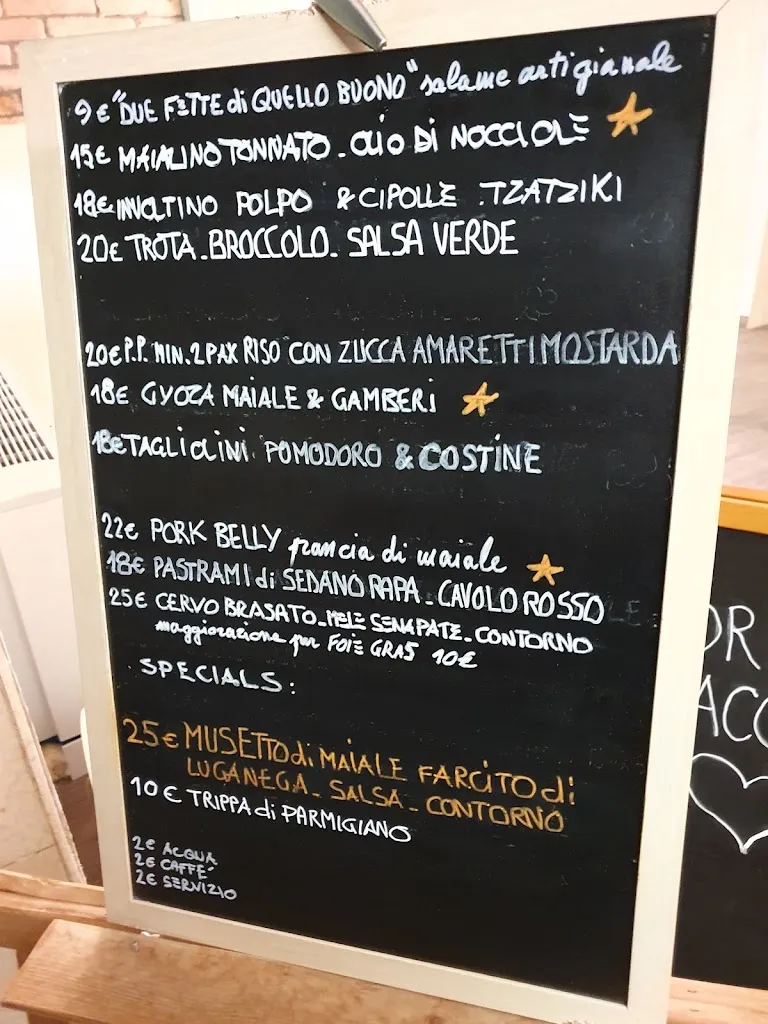 9€ "DUE FETTE di QUELLO BUONO" salame artigianale
15€ MAIALINO TONNATO - OLIO DI NOCCIOLE
18€ INVOLTINO POLPO & CIPOLLE . TZATZIKI
20€ TROTA - BROCCOLO - SALSA VERDE
20€ P.P. MIN. 2 PAX RISO CON ZUCCA AMARETTI MOSTARDA
18€ GYOZA MAIALE & GAMBERI
18€ TAGLIOLINI POMODORO & COSTINE
22€ PORK BELLY pancia di maiale
18€ PASTRAMI di SEDANO RAPA - CAVOLO ROSSO
25€ CERVO BRASATO - MELE SENAPATE - CONTORNO
maggiorazione per FOIE GRAS 10€
SPECIALS:
25€ MUSETTO di MAIALE FARCITO di
LUGANEGA - SALSA - CONTORNO
10€ TRIPPA di PARMIGIANO
2€ ACQUA
2€ CAFFE'
2€ SERVIZIO
OR
ACC